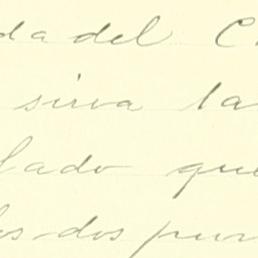 da del C
sirva la
lado que
los dos pun